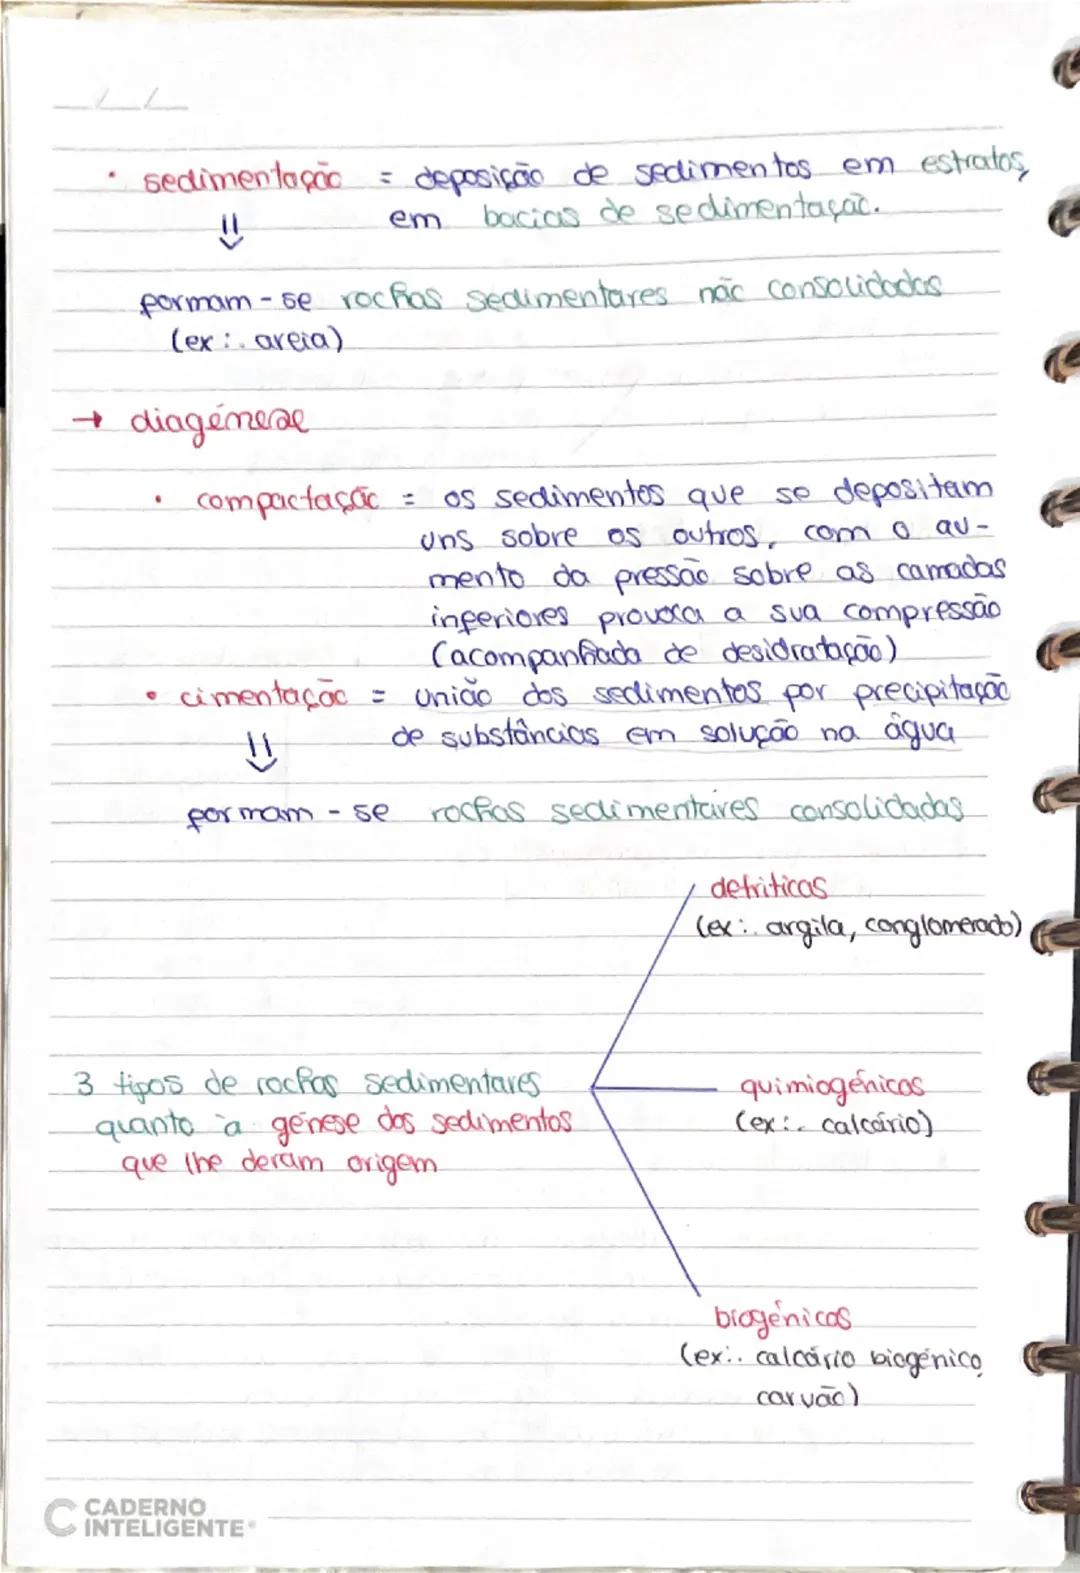 • sedimentação = deposição de sedimentos em estratos,
em bacias de sedimentação.
⇓
formam-se rochas sedimentares não consolidadas
(ex:. areia)
→ diagénese
• compactação = os sedimentos que se depositam
uns sobre os outros, com o au-
mento da pressão sobre as camadas
inferiores provoca a sua compressão
(acompanhada de desidratação)
• cimentação = união dos sedimentos por precipitação
de substâncias em solução na água
⇓
formam-se rochas sedimentares consolidadas
detríticas
(ex:. argila, conglomerado)
3 tipos de rochas sedimentares
quanto à génese dos sedimentos
que lhe deram origem
quimiogénicas
(ex:. calcário)
biogénicas
(ex:. calcário biogénico,
carvão)
CADERNO
INTELIGENTE®